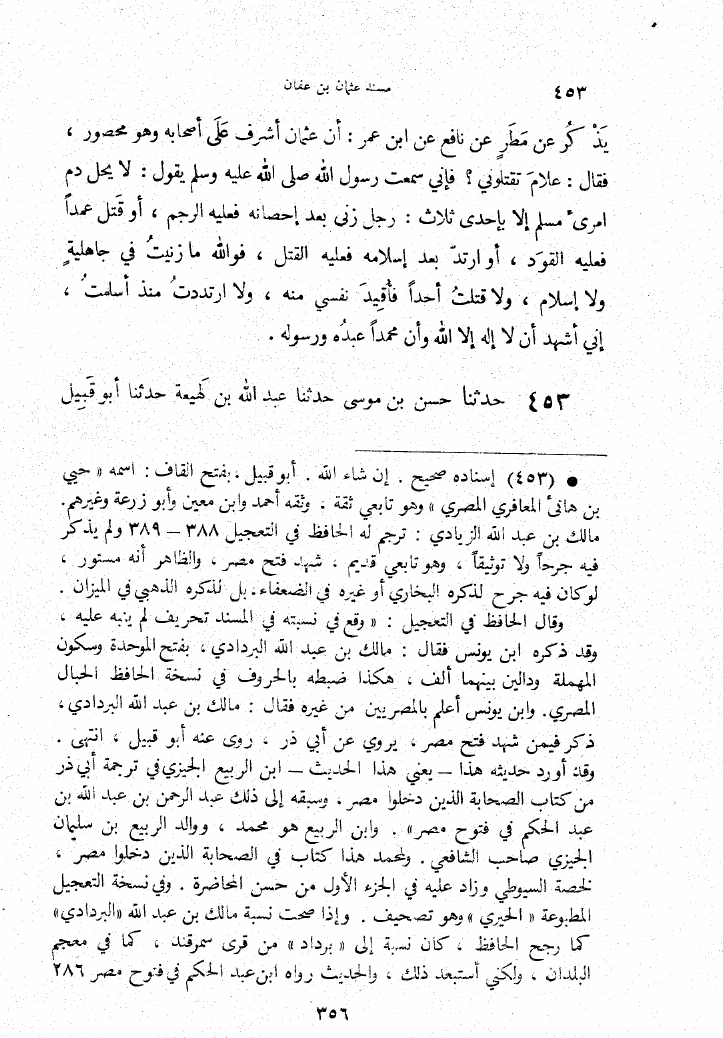 ٤٥٣ مسند عثمان بن عفان
يَذْكُر عن مَطَرٍ عن نافع عن ابن عمر : أن عثمان أشرف عَلَى أصحابه وهو محصور ،
فقال : علامَ تقتلوني ؟ فإني سمعت رسول الله صلى الله عليه وسلم يقول : لا يحل دم
امرىء مسلم إلا بإحدى ثلاث : رجل زنى بعد إحصانه فعليه الرجم ، أو قَتل عمداً
فعليه القوَد ، أو ارتدّ بعد إسلامه فعليه القتل ، فوالله ما زنيتُ في جاهليةٍ
ولا إسلام ، ولا قتلتُ أحداً فأُقِيدَ نفسي منه ، ولا ارتددتُ منذ أسلمتُ ،
إني أشهد أن لا إله إلا الله وأن محمداً عبدُه ورسوله .
٤٥٣ حدثنا حسن بن موسى حدثنا عبد الله بن لَهيعة حدثنا أبو قَبِيل
● (٤٥٣) إسناده صحيح . إن شاء الله . أبو قبيل ، بفتح القاف : اسمه « حيي
بن هانئ المعافري المصري » وهو تابعي ثقة ، وثقه أحمد وابن معين وأبو زرعة وغيرهم.
مالك بن عبد الله الزيادي : ترجم له الحافظ في التعجيل ٣٨٨ – ٣٨٩ ولم يذكر
فيه جرحاً ولا توثيقاً ، وهو تابعي قديم ، شهد فتح مصر ، والظاهر أنه مستور ،
لو كان فيه جرح لذكره البخاري أو غيره في الضعفاء ، بل لذكره الذهبي في الميزان .
وقال الحافظ في التعجيل : « وقع في نسبته في المسند تحريف لم ينبه عليه ،
وقد ذكره ابن يونس فقال : مالك بن عبد الله البردادي ، بفتح الموحدة وسكون
المهملة ودالين بينهما ألف ، هكذا ضبطه بالحروف في نسخة الحافظ الحبال
المصري . وابن يونس أعلم بالمصريين من غيره فقال : مالك بن عبد الله البردادي ،
ذكر فيمن شهد فتح مصر ، يروي عن أبي ذر ، روى عنه أبو قبيل ، انتهى .
وقد أورد حديثه هذا – يعني هذا الحديث – ابن الربيع الجيزي في ترجمة أبي ذر
من كتاب الصحابة الذين دخلوا مصر ، وسبقه إلى ذلك عبد الرحمن بن عبد الله بن
عبد الحكم في فتوح مصر » . وابن الربيع هو محمد ، ووالد الربيع بن سليمان
الجيزي صاحب الشافعي . ولمحمد هذا كتاب في الصحابة الذين دخلوا مصر ،
لخصة السيوطي وزاد عليه في الجزء الأول من حسن المحاضرة . وفي نسخة التعجيل
المطبوعة « الحيري » وهو تصحيف . وإذا صحت نسبة مالك بن عبد الله «البردادي»
كما رجح الحافظ ، كان نسبة إلى « برداد » من قرى سمرقند ، كما في معجم
البلدان ، ولكني أستبعد ذلك ، والحديث رواه ابن عبد الحكم في فتوح مصر ٢٨٦
٣٥٦